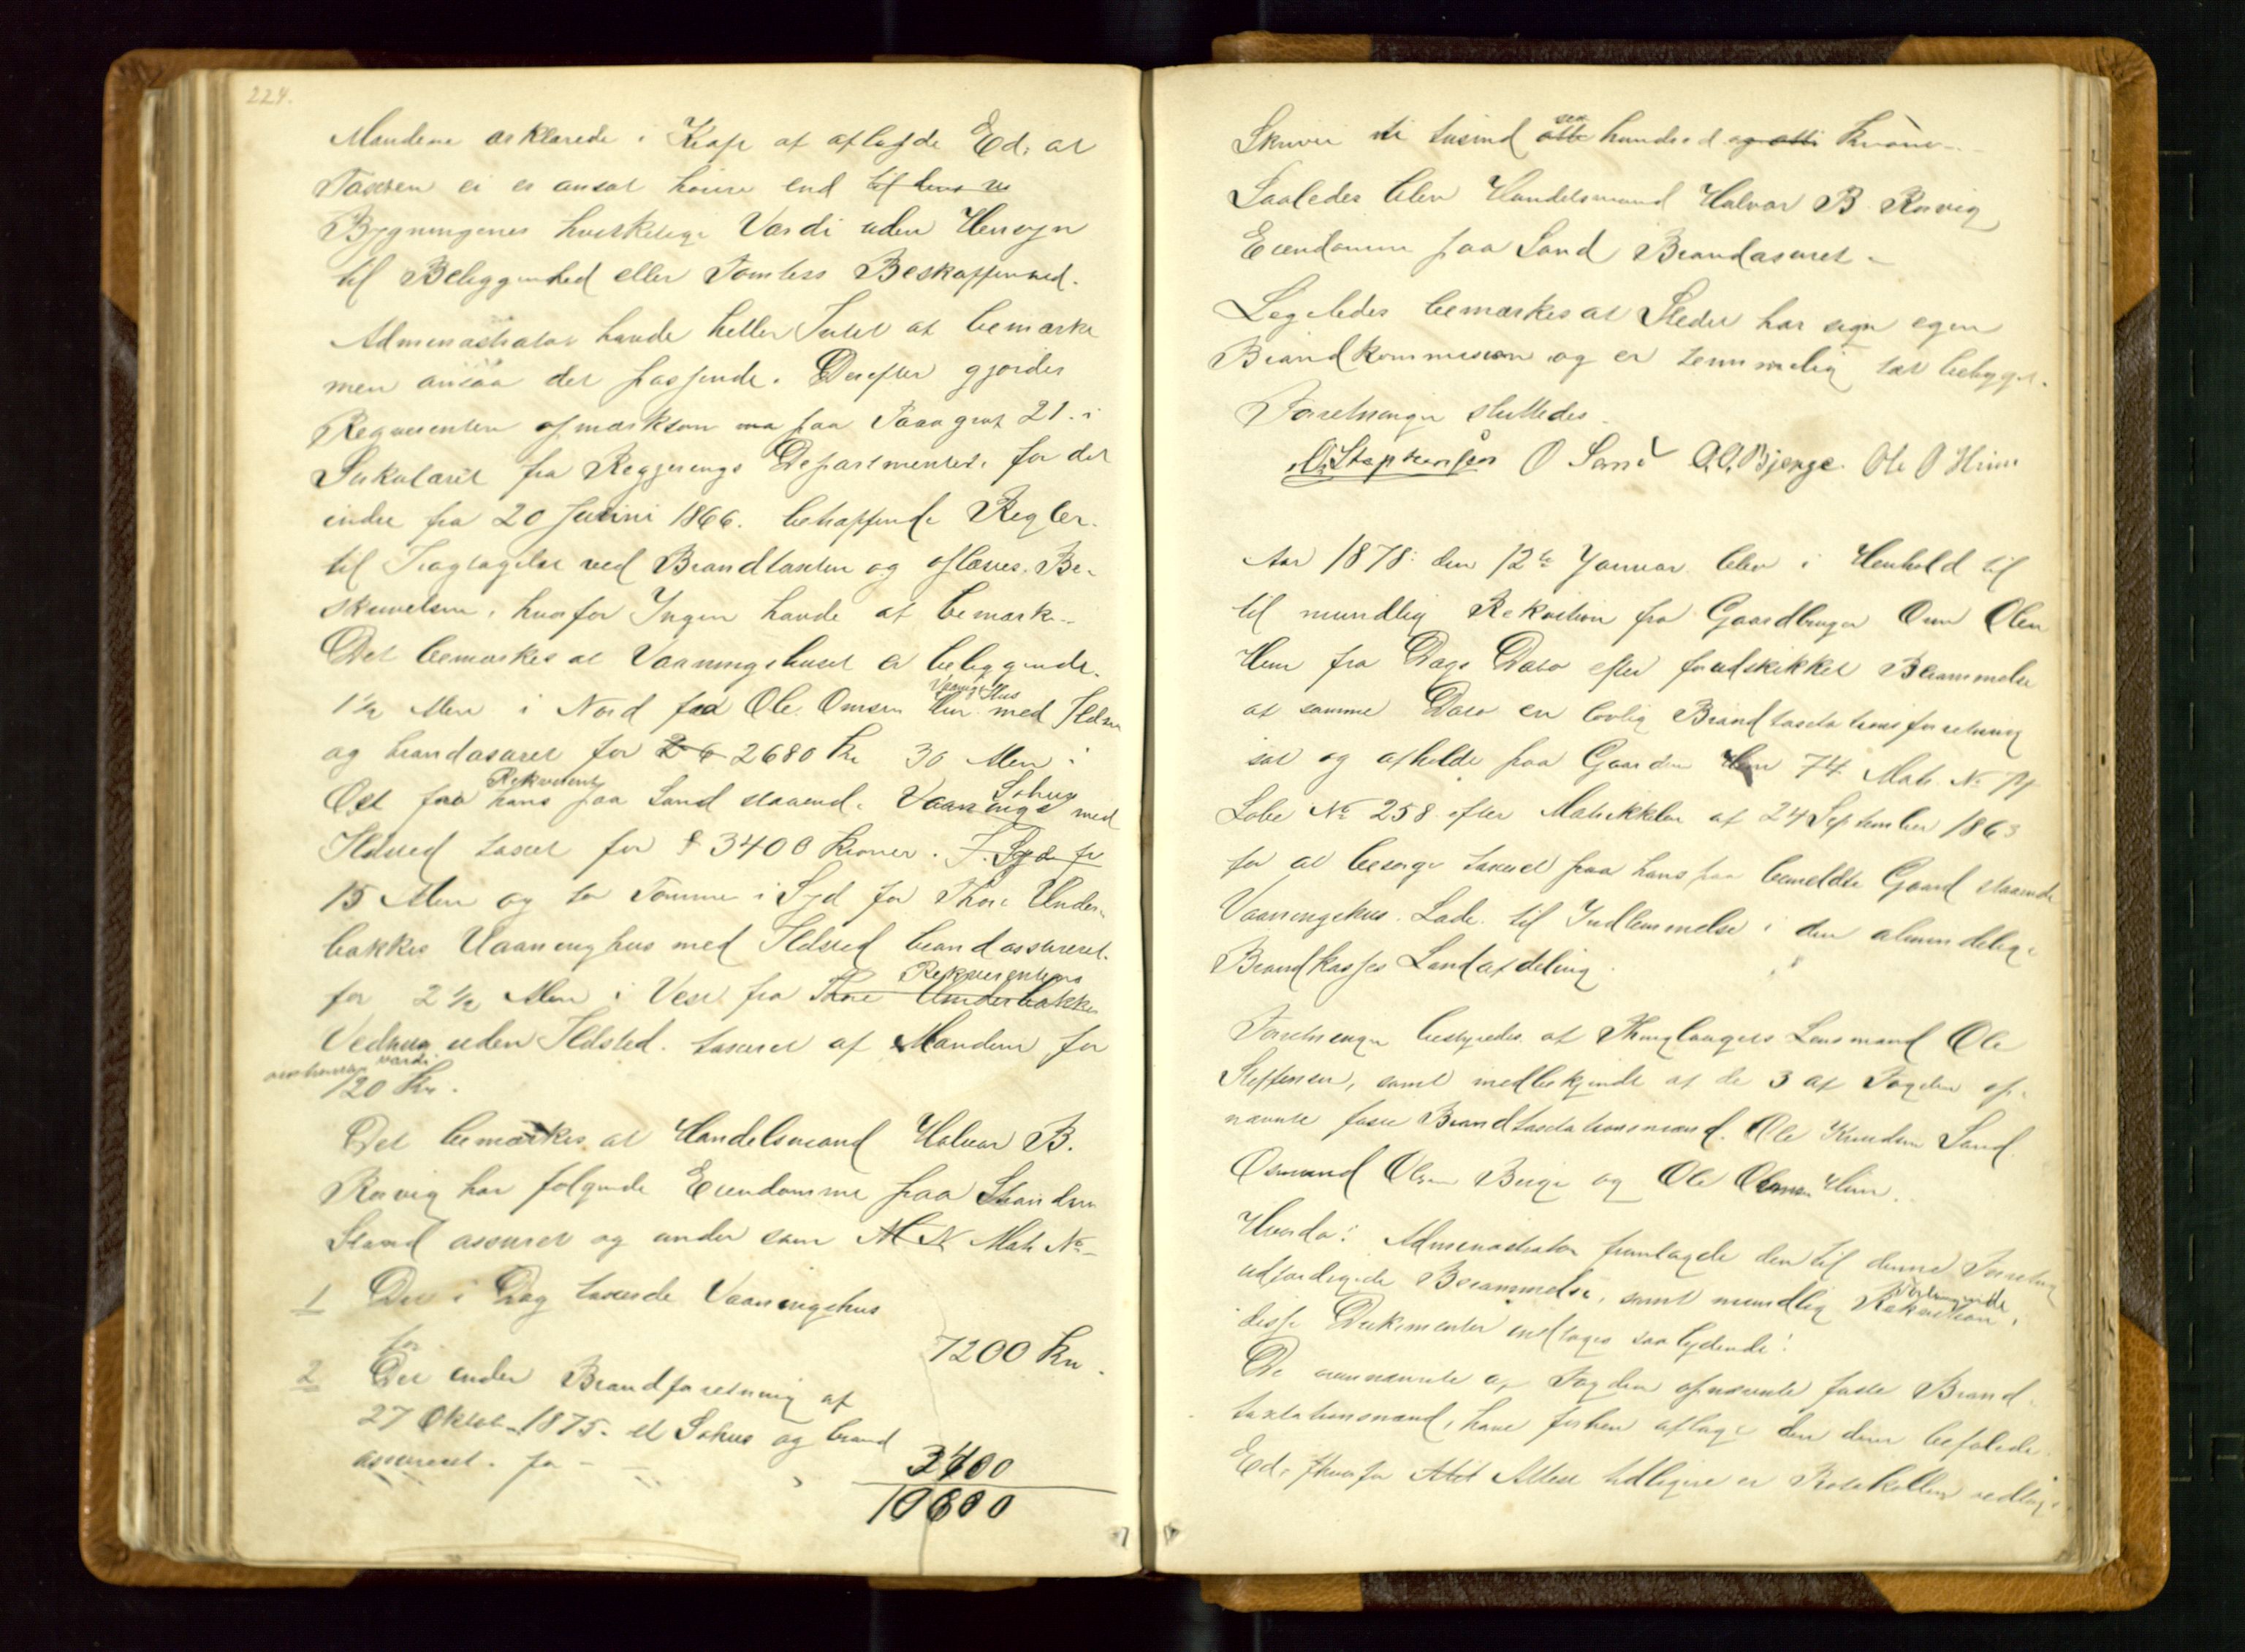 224.
Mændene erklærede i Kraft af aflagde Ed, at
Taxten ei er ansat høiere end til hans ve
Bygningenes hvirkelige Værdi uden Hensyn
til Beliggenhed eller Tomters Beskaffenhed.
Administrator havde heller Intet at bemærke
men ansaa det passende. Derefter gjordes
Reqvirenten opmærksom paa Paragraf 21. i
Sirkulæret fra Regjerings Departementet for det
indre fra 20 Juni 1866. behaffende Regler
til Iagtagelse ved Brandtaxten og oflæses Be-
skrivelsen, hvorfor Ingen havde at bemærke.
Det bemærkes at Vaaningshuset er beliggende
1½ Alen i Nord fra Ole Omsen Hiim Vaanings Hus med Ildsted
og brandasuret for 2680 Kr 30 Alen i
Øst fra Rekvirent hans paa Sand staaende Vaanings Søhus med
Ildsted taxeret for 3400 Kroner. I Syd fr
15 Alen og to Tommer i Syd for Thore Under-
bakkes Vaaninghus med Ildsted brandassureret
for 2½ Alen i Vest fra Thore Underbakke Rekvirentens
Vedhus uden Ildsted. taxeret af Mændene for
værdi
120 Kr.
Det bemærkes at Handelsmand Halvor B.
Rørvig har følgende Eiendomme paa Stranden
Sand assuret og under samme Mat No
1 Det i Dag taxerede Vaaningshus
for 7200 Kr.
2 Det under Brandforretning af
27 Oktob. 1875. et Søhus og brand
assureret. for - 3400
10600
Skriver ti tusind otte sex hundred og otti Kroner
Saaledes blev Handelsmand Halvor B. Rørvig
Eiendomme paa Sand Brandasuret -
Ligeledes bemærkes at Stedet har sign egen
Brandkommission og er temmelig tæt bebygget.
Forretningen sluttedes
O. Stephensen O Sand O.O. Bjerge. Ole O Hiim
Aar 1878: den 12te Januar blev i Henhold til
til mundlig Rekvition fra Gaardbruger Om Olsen
Hiim fra Dags Dato efter forudskikket Berammelse
af samme Dato en lovlig Brandtaxtationsforretning
sat og afholdt paa Gaarden Hiim 74 Mat. No 74
Løbe No 258 efter Matrikkelen af 24 September 1863
for at besørge taxeret paa hans paa bemeldte Gaard staaende
Vaaningshus. Lade. til Indlemmelse i den almindelige
Brandkasses Landafdeling.
Forretningen bestyredes af Thinglaugets Lensmand Ole
Steffensen, samt medbekjendt af de 3 af Fogden op-
nævnte faste Brandtaxtationsmænd. Ole Knudsen Sand
Osmund Olsen Berge og Ole Omsen Hiim.
Hvorda: Administrator fremlagde den til denne Forretning
udfærdigede Berammelse, samt mundlig Rekvition. Forlangende
disse Dokumenter indtages saa lydende!
De ovennævnte af Fogden opnævnte faste Brand-
taxtationsmænd, have forhen aflagt den dem befalede
Ed, hvorfor Attest tidligere er Protokollen vedlagt